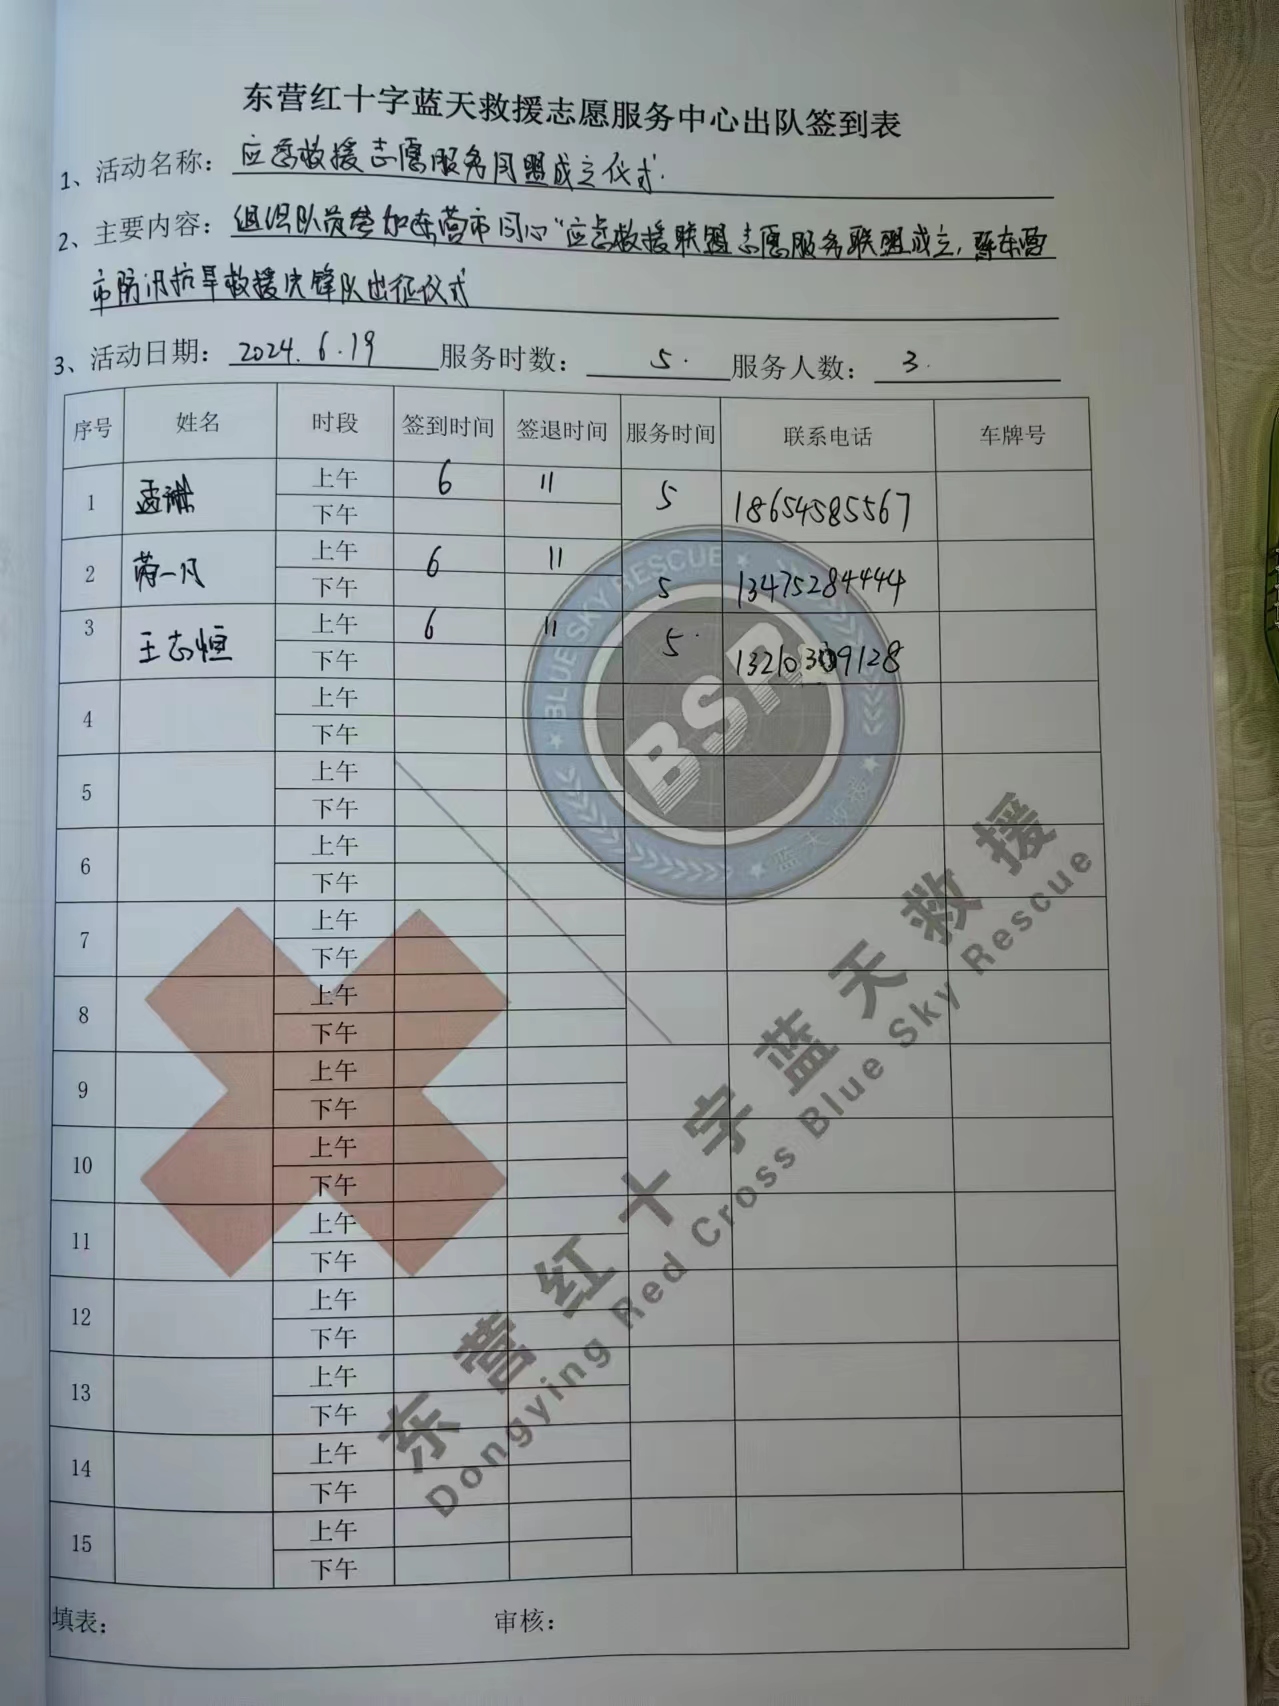 东营红十字蓝天救援志愿服务中心出队签到表
1、活动名称：应急救援志愿服务同盟成立仪式.
2、主要内容：组织队员参加东营市同心"应急救援联盟志愿服务联盟成立，暨东营
市防汛抗旱救援先锋队出征仪式
3、活动日期：2024.6.19 服务时数：5. 服务人数：3.
序号 姓名 时段 签到时间 签退时间 服务时间 联系电话 车牌号
1 孟 上午 6 11 5 18654585567
下午
2 一凡 上午 6 11 5 13475284444
下午
3 王志恒 上午 6 11 5. 132109128
下午
4 上午
下午
5 上午
下午
6 上午
下午
7 上午
下午
8 上午
下午
9 上午
下午
10 上午
下午
11 上午
下午
12 上午
下午
13 上午
下午
14 上午
下午
15 上午
下午
填表： 审核：
BLUE SKY RESCUE
BSR
蓝天救援
东营红十字蓝天救援
Dongying Red Cross Blue Sky Rescue